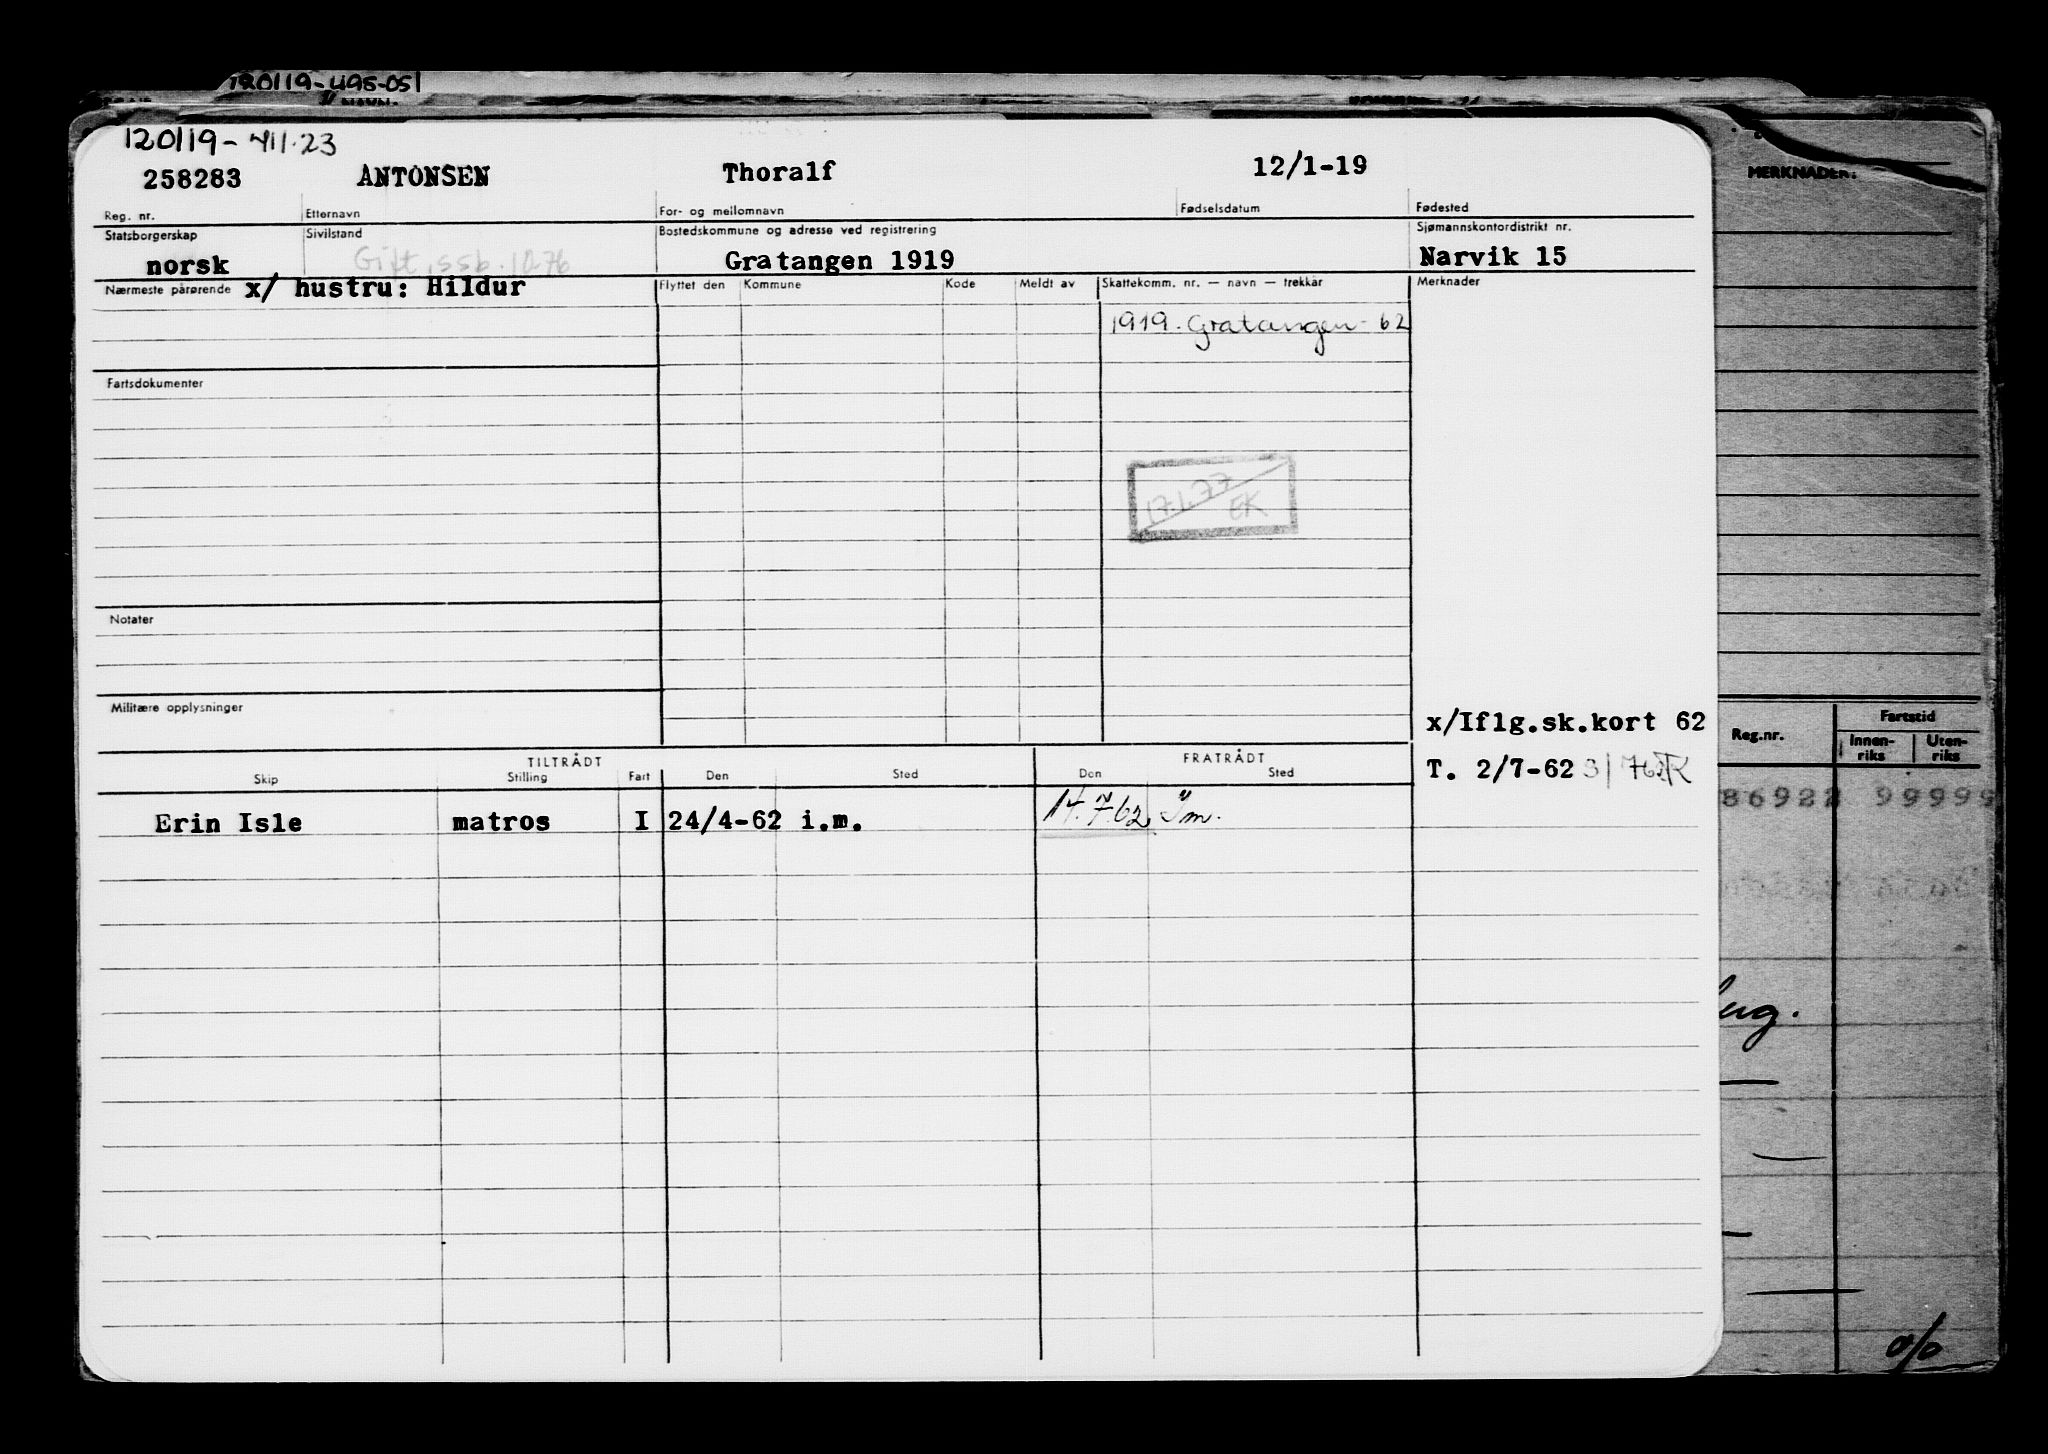 120119-498-051
120119-411.23
258283 ANTONSEN Thoralf 12/1-19
Reg. nr. Etternavn For- og mellomnavn Fødselsdatum Fødested
Statsborgerskap Sivilstand Bostedskommune og adresse ved registrering Sjømannskontordistrikt nr.
norsk Gift, ssb. 1976 Gratangen 1919 Narvik 15
Nærmeste pårørende x/ hustru: Hildur Flyttet den Kommune Kode Meldt av Skattekomm. nr. — navn — trekkår Merknader
1919. Gratangen - 62
Fartsdokumenter
17.1.77
EK
Notater
Militære opplysninger
x/Iflg.sk.kort 62
TILTRÅDT FRATRÅDT
T. 2/7-62
Skip Stilling Fart Den Sted Den Sted
Erin Isle matros I 24/4-62 i.m. 14.7.62. Im.
MERKNADER:
Reg.nr. Fartstid
Innen-riks Uten-riks
86922 99999